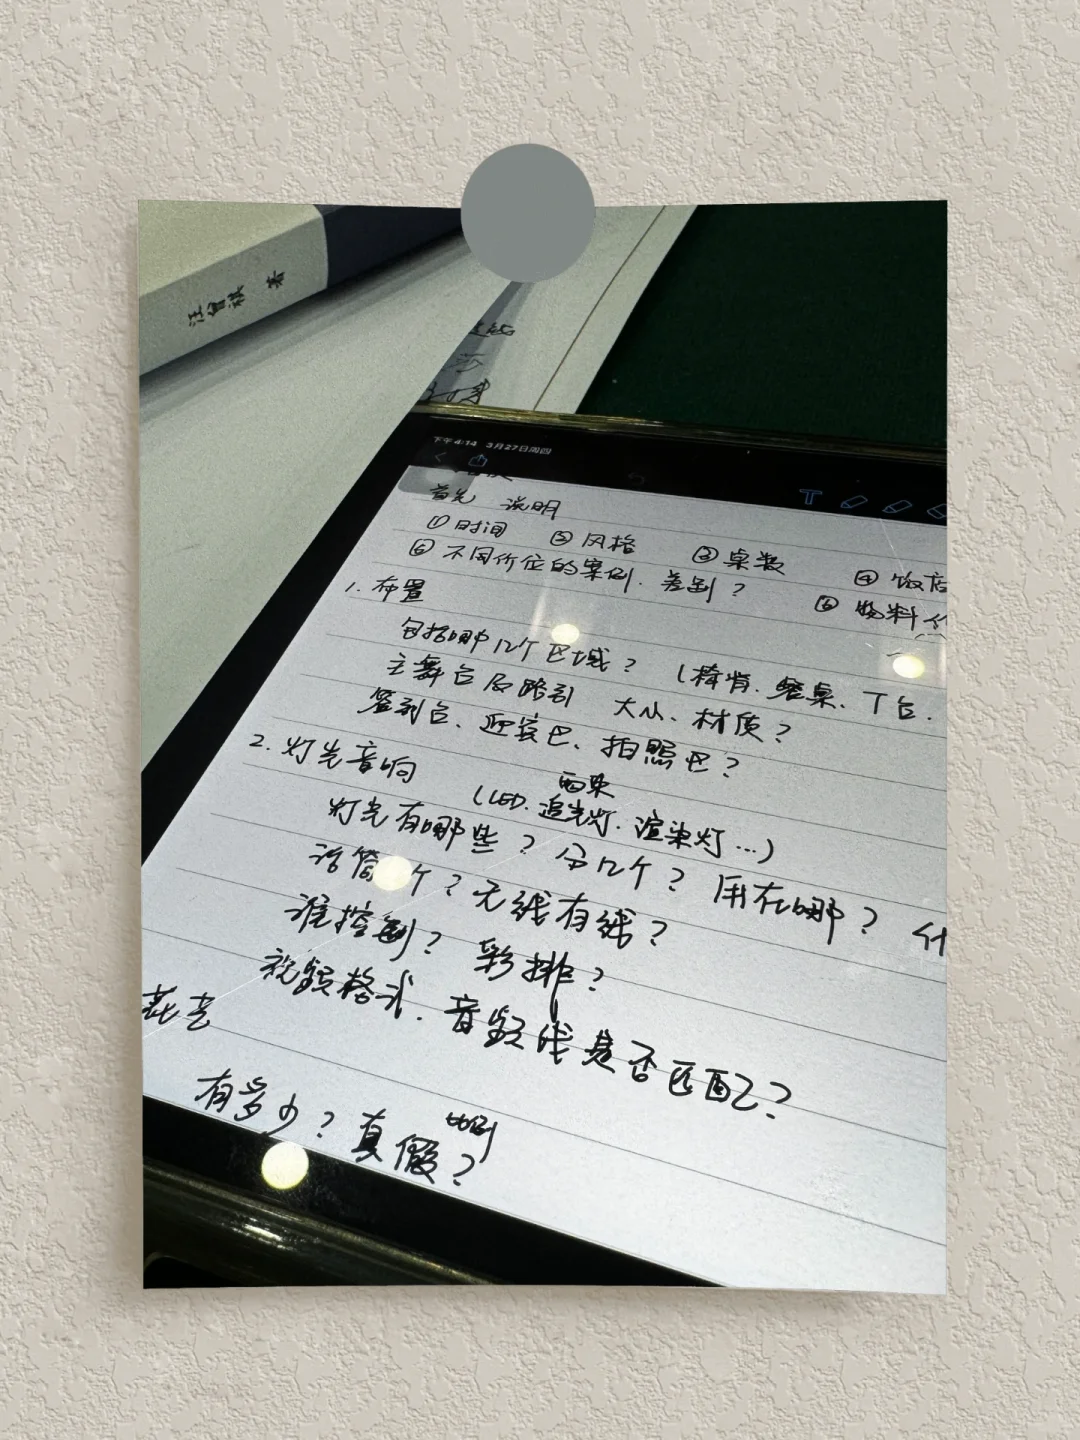 汪曾祺 著
下午4:14 3月27日周四
首先 说明
①时间 ②风格 ③桌数 ④饭店
⑥不同价位的案例. 差别? ⑤物料
1. 布置
包括哪几个区域? (椅背. 餐桌. T台.
主舞台及路引 大小. 材质?
签到台. 迎宾区. 拍照区?
2. 灯光音响
面光
(LED. 追光灯. 渲染灯…)
灯光有哪些? 分几个? 用在哪? 什
话筒 个? 无线有线?
谁控制? 彩排?
视频格式. 音频线是否匹配?
花艺
有多少? 真假比例?